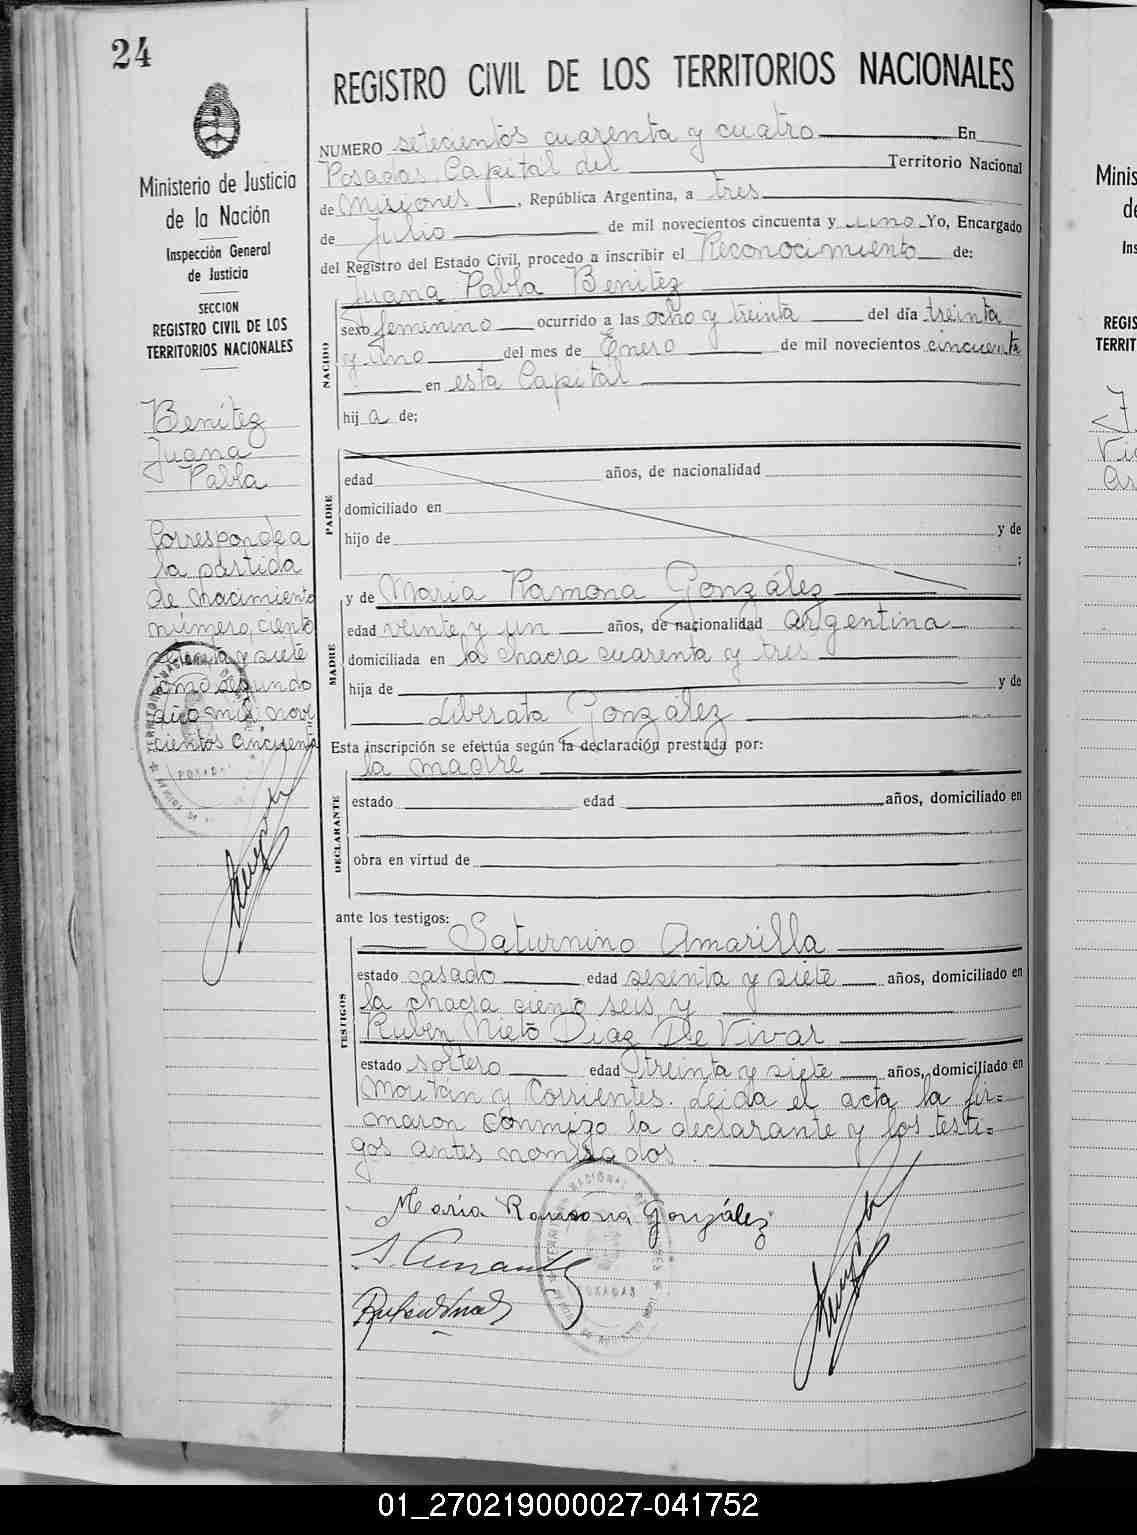 24
REGISTRO CIVIL DE LOS TERRITORIOS NACIONALES
Ministerio de Justicia
de la Nación
Inspección General
de Justicia
SECCION
REGISTRO CIVIL DE LOS
TERRITORIOS NACIONALES
Benítez
Juana
Pabla
Corresponde a
la partida
de nacimiento
número ciento
y siete
tomo segundo
año mil nove
cientos cincuenta
NUMERO setecientos cuarenta y cuatro En
Posadas, Capital del Territorio Nacional
de Misiones, República Argentina, a tres
de Julio de mil novecientos cincuenta y uno Yo, Encargado
del Registro del Estado Civil, procedo a inscribir el Reconocimiento de:
Juana Pabla Benítez
NACIDO
sexo femenino ocurrido a las ocho y treinta del día treinta
y uno del mes de Enero de mil novecientos cincuenta
en esta Capital
hij a de;
PADRE
edad años, de nacionalidad
domiciliado en
hijo de y de
;
y de María Ramona González
MADRE
edad veinte y un años, de nacionalidad argentina
domiciliada en la chacra cuarenta y tres
hija de y de
Liberata González
Esta inscripción se efectúa según la declaración prestada por:
la madre
DECLARANTE
estado edad años, domiciliado en
obra en virtud de
ante los testigos:
Saturnino Amarilla
TESTIGOS
estado casado edad sesenta y siete años, domiciliado en
la chacra ciento seis, y
Rubén Nieto Diaz De Vivar
estado soltero edad treinta y siete años, domiciliado en
Moritán y Corrientes. Leida el acta la fir=
maron conmigo la declarante y los testi=
gos antes nombrados.
María Ramona González
POSADAS
Minis
de
Ins
REGIS
TERRIT
01_270219000027-041752